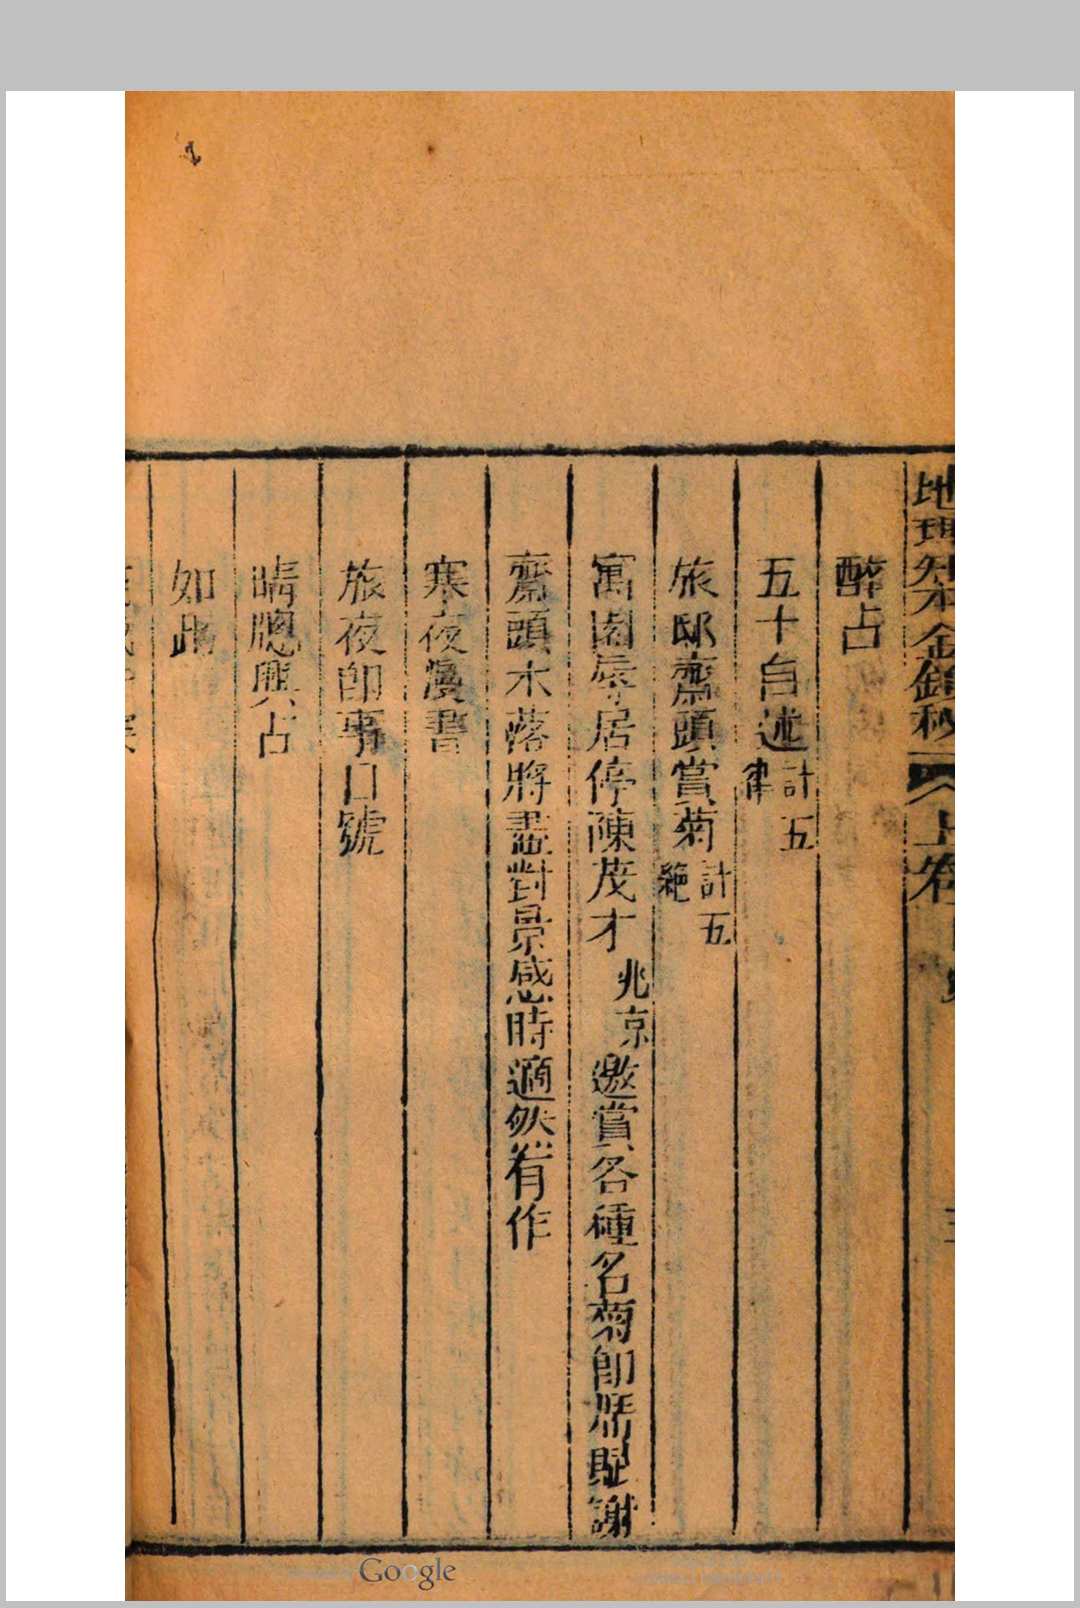 地理知本金鎖秘 上卷
醉占
五十自述 計五律
旅邸齋頭賞菊 計五絕
寓園辱居停陳茂才 兆京 邀賞各種名菊即席賦謝
齋頭木落將盡對景感時適然有作
寒夜漫書
旅夜即事口號
晴牕興占
如此
Google